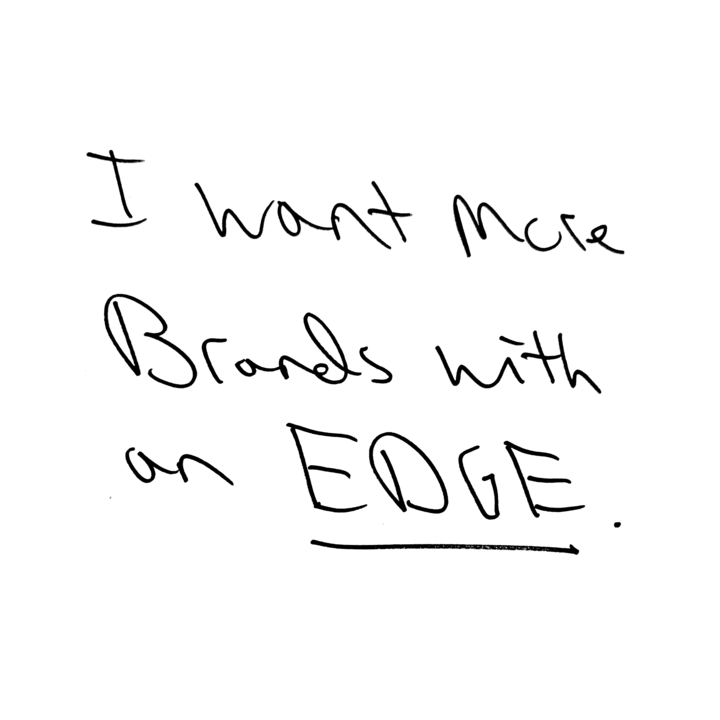 I want more
Brands with
an EDGE.